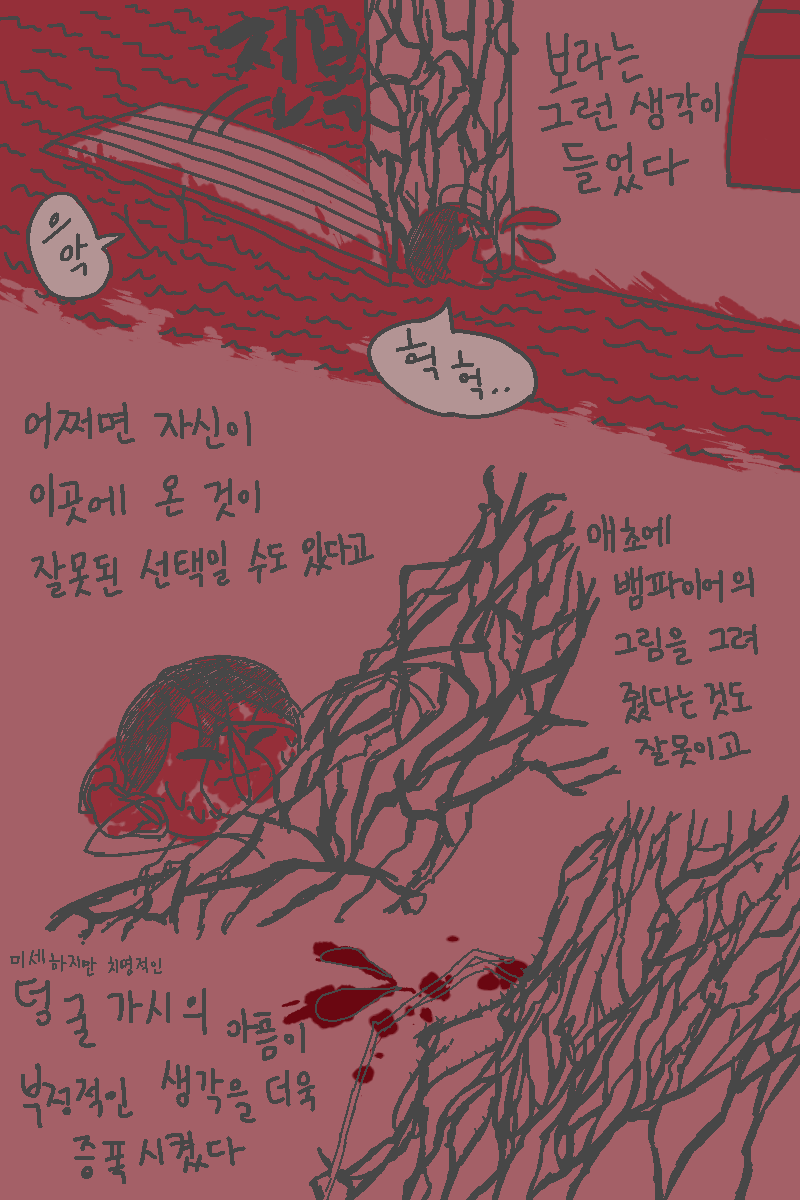 전복
보라는
그런 생각이
들었다
으
악
헉 헉..
어쩌면 자신이
이곳에 온 것이
잘못된 선택일 수도 있다고
애초에
뱀파이어의
그림을 그려
줬다는 것도
잘못이고
미세하지만 치명적인
덩굴 가시의 아픔이
부정적인 생각을 더욱
증폭시켰다